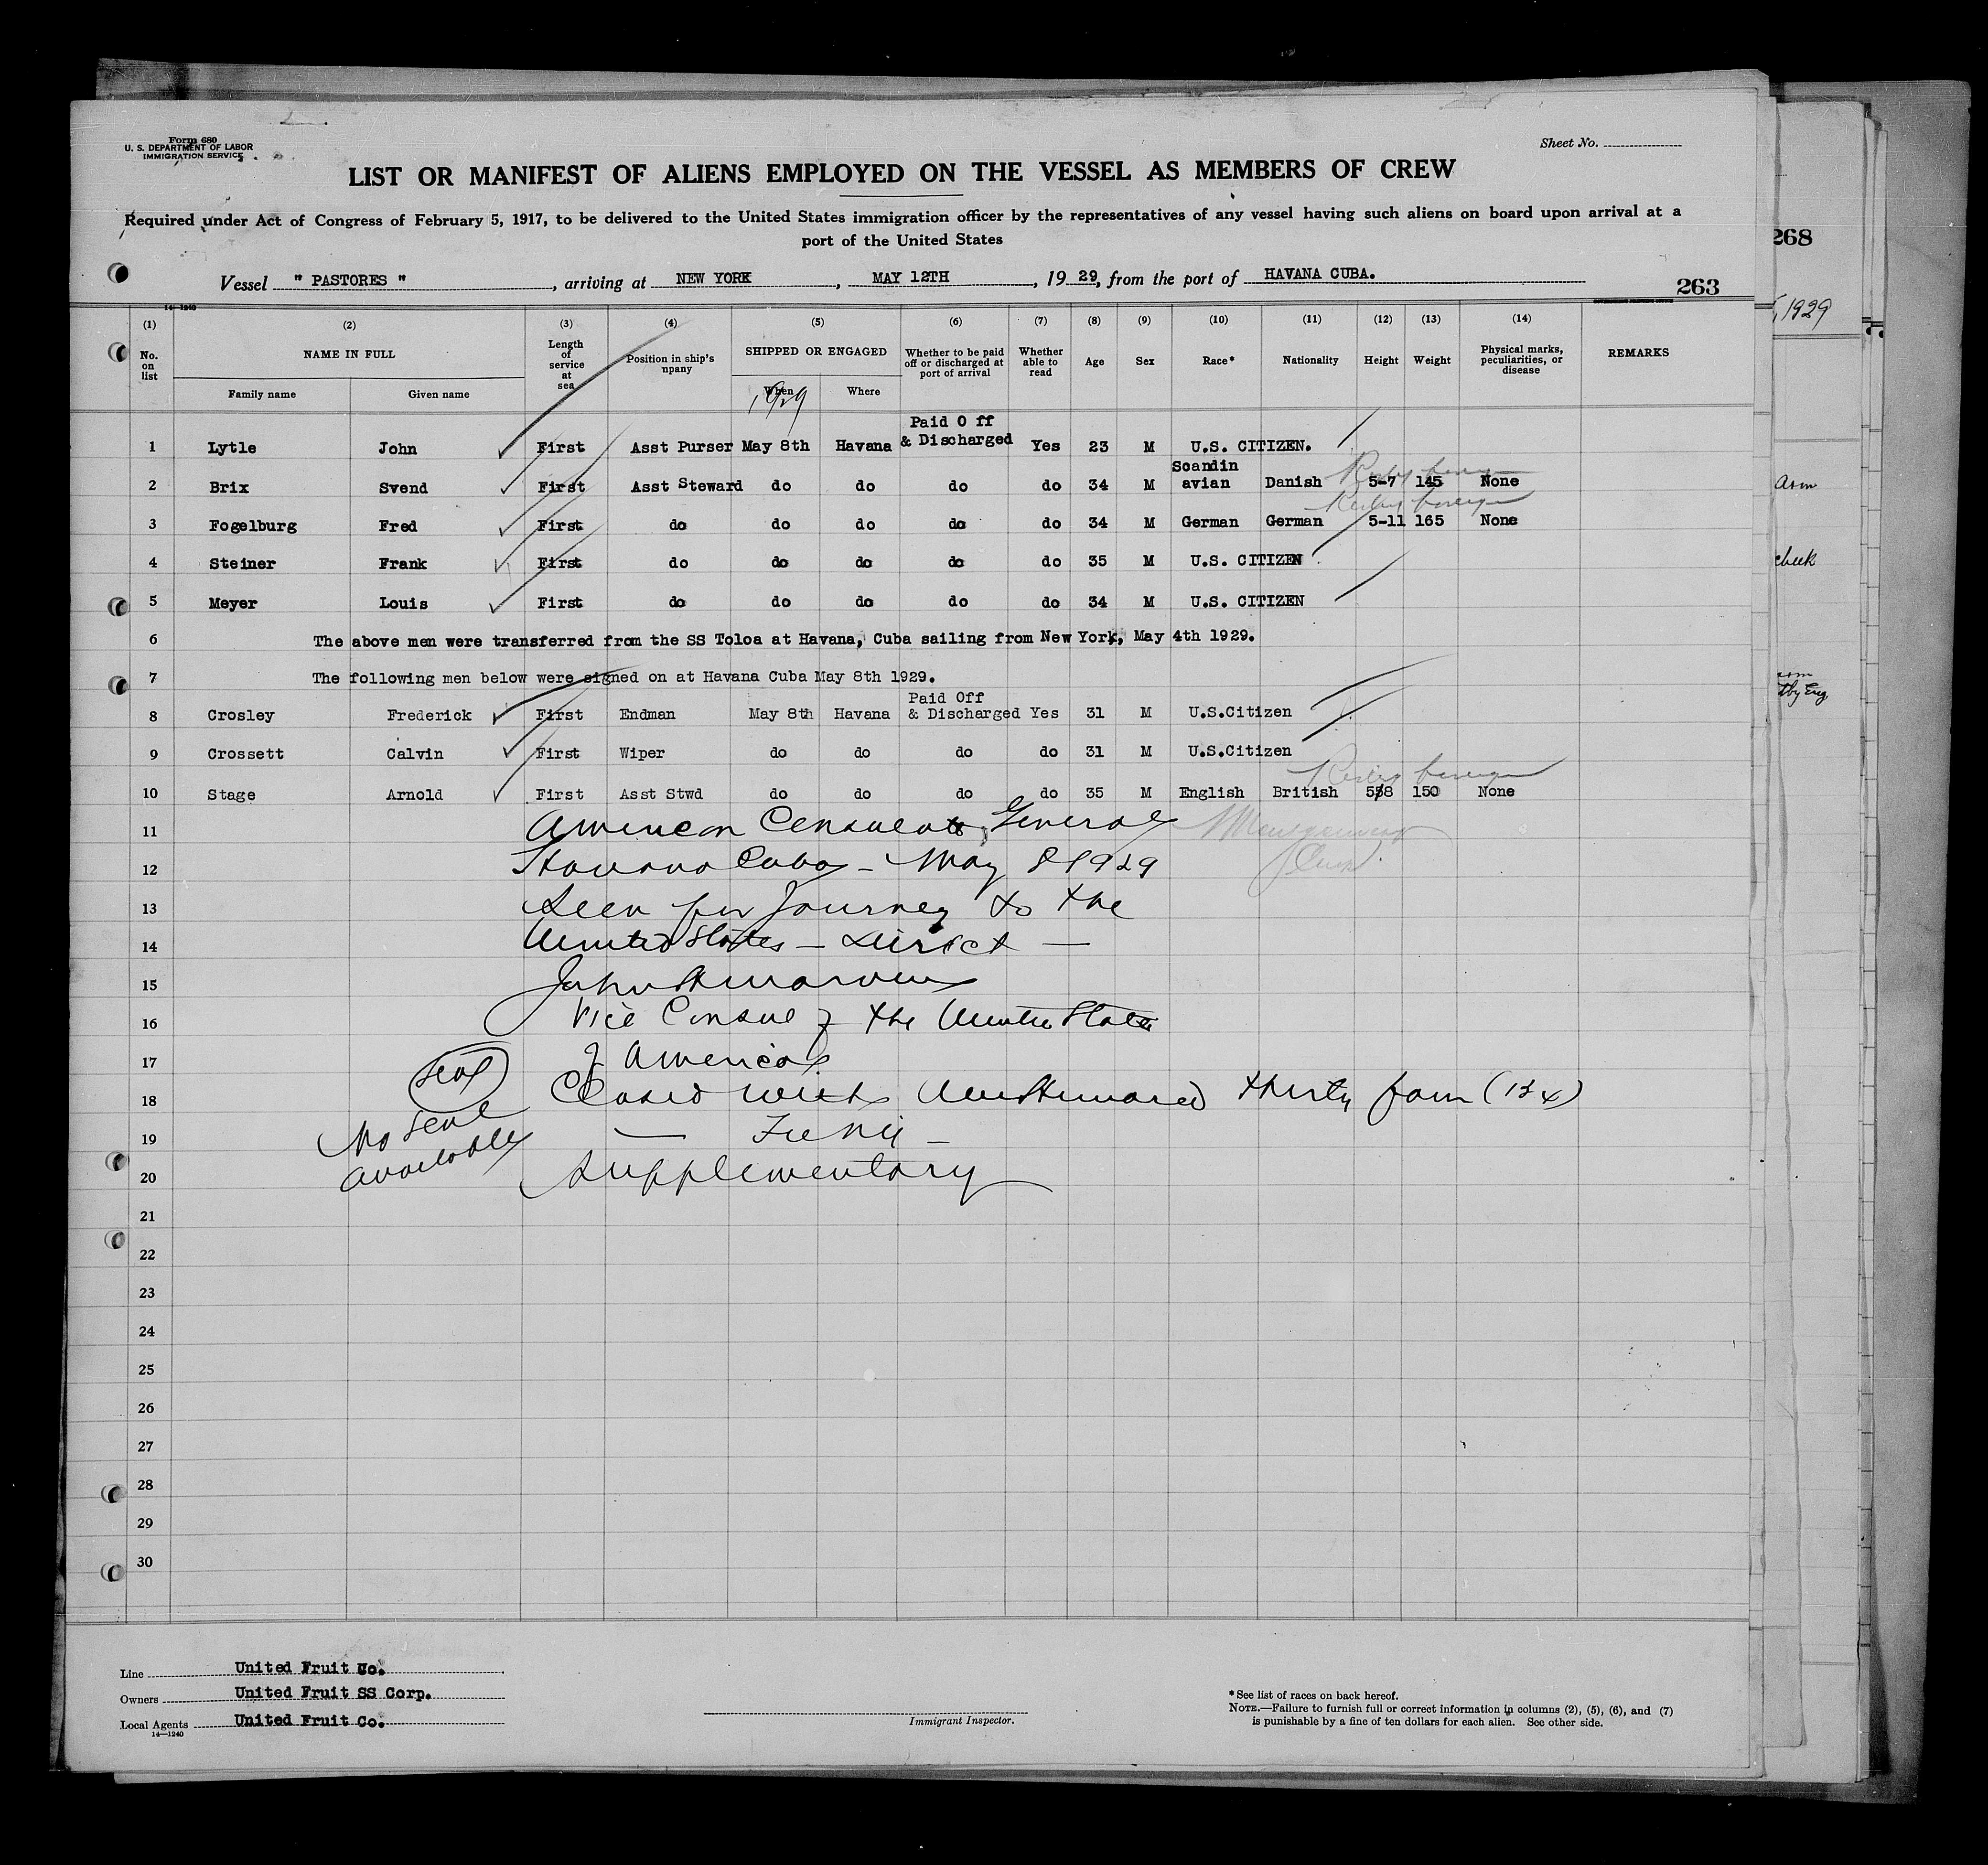 Form 680
U. S. DEPARTMENT OF LABOR
IMMIGRATION SERVICE
Sheet No.
LIST OR MANIFEST OF ALIENS EMPLOYED ON THE VESSEL AS MEMBERS OF CREW
Required under Act of Congress of February 5, 1917, to be delivered to the United States immigration officer by the representatives of any vessel having such aliens on board upon arrival at a
port of the United States
268
Vessel " PASTORES ", arriving at NEW YORK, MAY 12TH, 19 29, from the port of HAVANA CUBA.
263
14-1240
1929
(1) (2) (3) (4) (5) (6) (7) (8) (9) (10) (11) (12) (13) (14)
No. on list NAME IN FULL Length of service at sea Position in ship's mpany SHIPPED OR ENGAGED Whether to be paid off or discharged at port of arrival Whether able to read Age Sex Race* Nationality Height Weight Physical marks, peculiarities, or disease REMARKS
Family name Given name When Where
1929
Paid O ff
1 Lytle John First Asst Purser May 8th Havana & Discharged Yes 23 M U.S. CITIZEN.
Scandin
2 Brix Svend First Asst Steward do do do do 34 M avian Danish 5-7 145 None
arm
3 Fogelburg Fred First do do do do do 34 M German German 5-11 165 None
4 Steiner Frank First do do do do do 35 M U.S. CITIZEN
cheek
5 Meyer Louis First do do do do do 34 M U.S. CITIZEN
6 The above men were transferred from the SS Toloa at Havana, Cuba sailing from New York, May 4th 1929.
7 The following men below were signed on at Havana Cuba May 8th 1929.
Paid Off
8 Crosley Frederick First Endman May 8th Havana & Discharged Yes 31 M U.S.Citizen
9 Crossett Calvin First Wiper do do do do 31 M U.S.Citizen
10 Stage Arnold First Asst Stwd do do do do 35 M English British 5-8 150 None
11 American Consulate General
12 Havana Cuba - May 8 1929
13 Seen for Journey to the
14 United States - Direct -
15 John
16 Vice Consul of the United States
17 of America
Seal
18 Closed with One Hundred thirty four (134)
No seal
19
available
20 Supplementary
21
22
23
24
25
26
27
28
29
30
Line United Fruit Co.
Owners United Fruit SS Corp.
Local Agents United Fruit Co.
14—1240
Immigrant Inspector.
* See list of races on back hereof.
NOTE.—Failure to furnish full or correct information in columns (2), (5), (6), and (7)
is punishable by a fine of ten dollars for each alien. See other side.